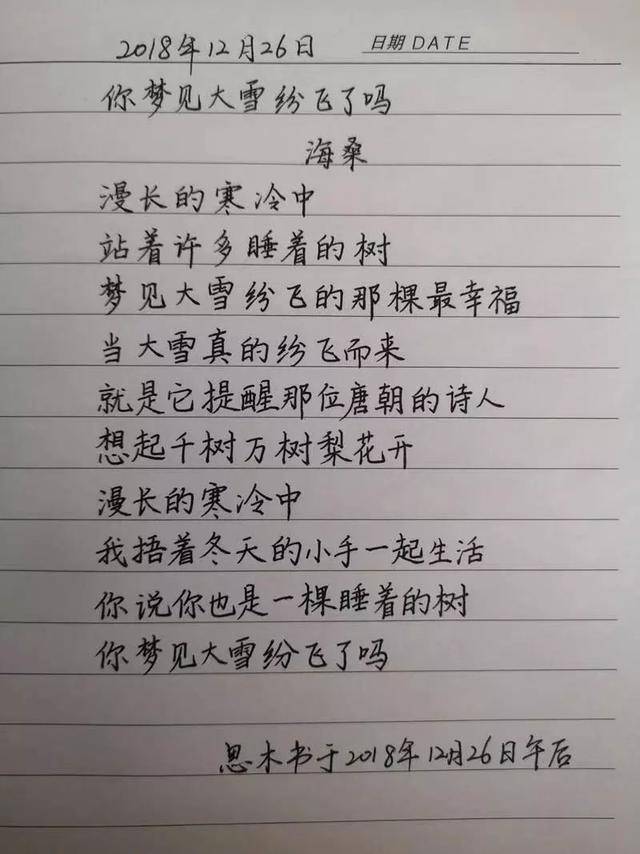 2018年12月26日 日期 DATE
你梦见大雪纷飞了吗
海桑
漫长的寒冷中
站着许多睡着的树
梦见大雪纷飞的那棵最幸福
当大雪真的纷飞而来
就是它提醒那位唐朝的诗人
想起千树万树梨花开
漫长的寒冷中
我捂着冬天的小手一起生活
你说你也是一棵睡着的树
你梦见大雪纷飞了吗
思木书于2018年12月26日午后